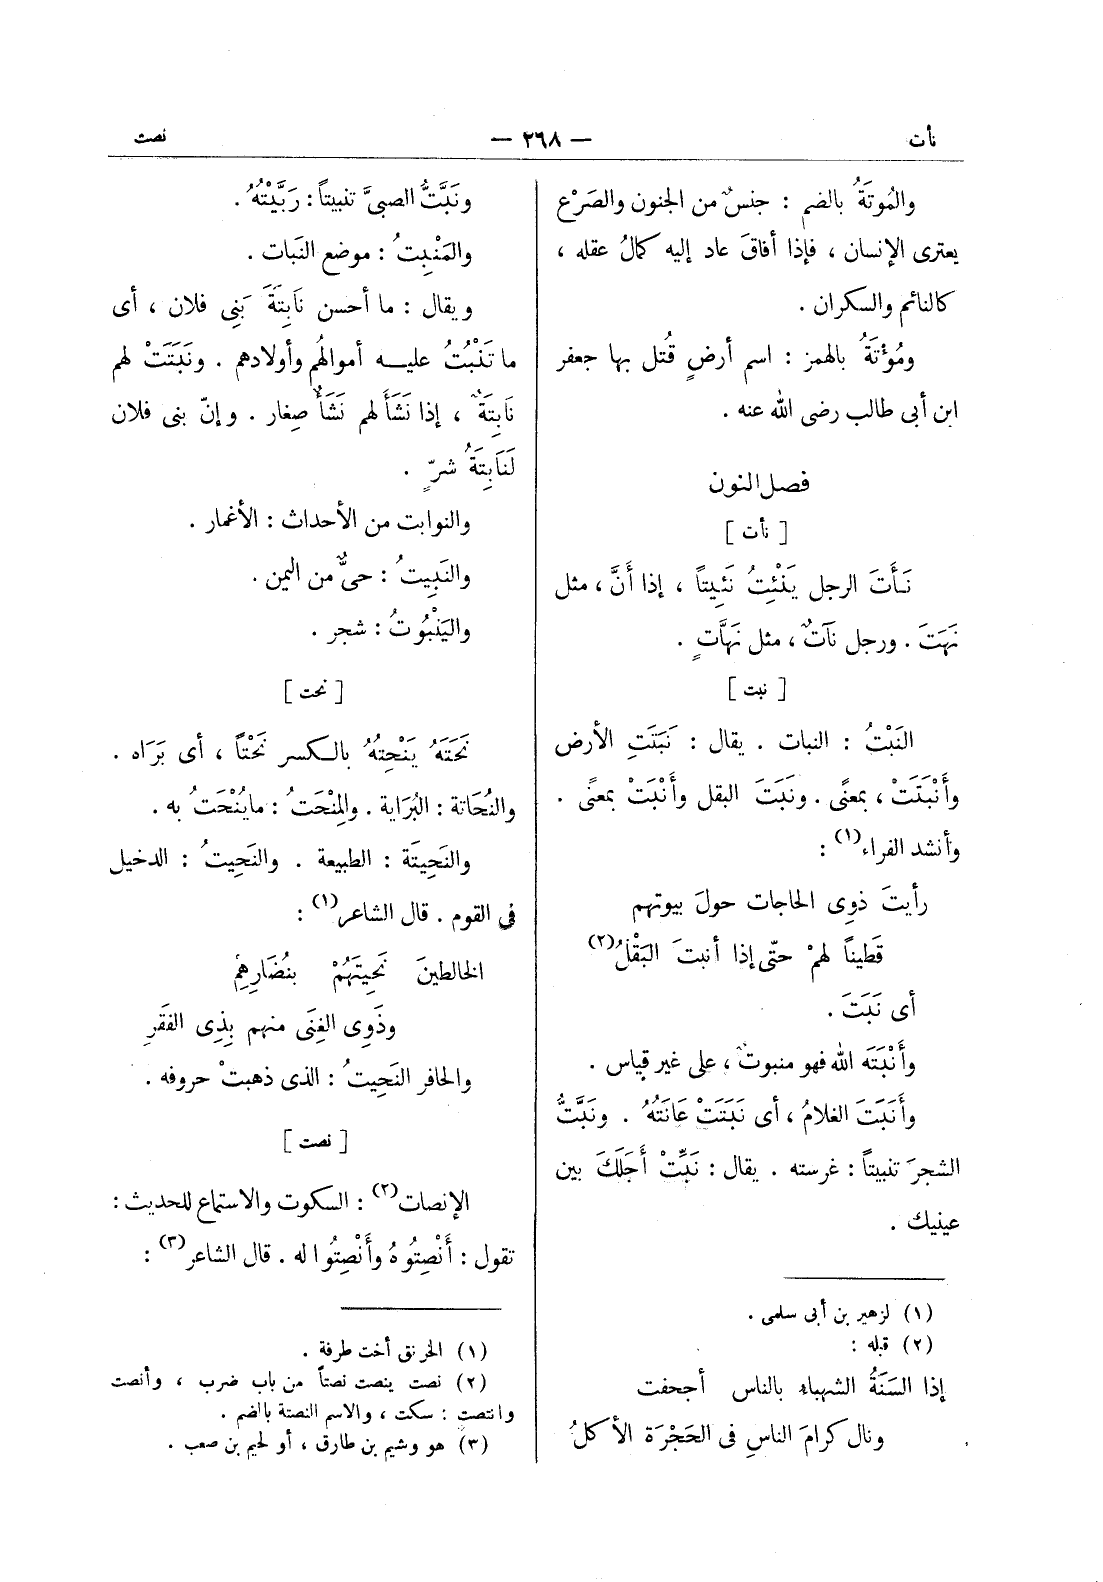 نأت
— ٢٦٨ —
نصت
والمُوتَةُ بالضم : جنسٌ من الجنون والصَرْعِ
يعترى الإنسان ، فإذا أفاقَ عاد إليه كمالُ عقله ،
كالنائم والسكران .
ومُؤْتَةُ بالهمز : اسم أرضٍ قُتل بها جعفر
ابن أبى طالب رضى الله عنه .
فصل النون
[ نأت ]
نَأَتَ الرجل يَنْئِتُ نَئِيتاً ، إذا أَنَّ ، مثل
نَهَتَ . ورجل نَآتٌ ، مثل نَهَّاتٍ .
[ نبت ]
النَبْتُ : النبات . يقال : نَبَتَتِ الأرض
وأَنْبَتَتْ ، بمعنًى . ونَبَتَ البقل وأَنْبَتْ بمعنًى .
وأنشد الفراء(١) :
رأيتَ ذوِى الحاجات حولَ بيوتهم
قَطيناً لهمْ حتّى إذا أنبتَ البَقْلُ(٢)
أى نَبَتَ .
وأَنْبَتَه الله فهو منبوتٌ ، على غير قياس .
وأَنْبَتَ الغلامُ ، أى نَبَتَتْ عَانَتُهُ . ونَبَّتُّ
الشجرَ تنبيتاً : غرسته . يقال : نَبِّتْ أَجَلَكَ بين
عينيك .
(١) لزهير بن أبى سلمى .
(٢) قبله :
إذا السَنَةُ الشهباء بالناس أجحفت
ونال كرامَ الناسِ فى الحَجْرَة الأكلُ
ونَبَّتُّ الصبىَّ تنبيتاً : رَبَّيْتُهُ .
والمَنْبِتُ : موضع النبات .
ويقال : ما أحسن نَابِتَةَ بَنِى فلان ، أى
ما تَنْبُتُ عليه أموالُهم وأولادهم . ونَبَتَتْ لهم
نَابِتَةٌ ، إذا نَشَأَ لهم نَشَأٌ صِغار . وإنّ بنى فلان
لَنَابِتَةُ شرٍّ .
والنوابت من الأحداث : الأغمار .
والنَبِيتُ : حىٌّ من اليمن .
واليَنْبُوتُ : شجر .
[ نحت ]
نَحَتَهُ يَنْحِتُهُ بالكسر نَحْتاً ، أى بَرَاه .
والنُحَاتة : البُرَاية . والمِنْحَتُ : ما يُنْحَتُ به .
والنَحِيتَة : الطبيعة . والنَحِيتُ : الدخيل
فى القوم . قال الشاعر(١) :
الخالطينَ نَحِيتَهُمْ بنُضَارِهِمْ
وذَوِى الغِنَى منهم بِذِى الفَقْرِ
والحافر النَحِيتُ : الذى ذهبتْ حروفه .
[ نصت ]
الإنصات(٢) : السكوت والاستماع للحديث :
تقول : أَنْصِتُوهُ وأَنْصِتُوا له . قال الشاعر(٣) :
(١) الخرنق أخت طرفة .
(٢) نصت ينصت نصتاً من باب ضرب ، وأنصت
وانتصت : سكت ، والاسم النصتة بالضم .
(٣) هو وشيم بن طارق ، أو لحيم بن صعب .